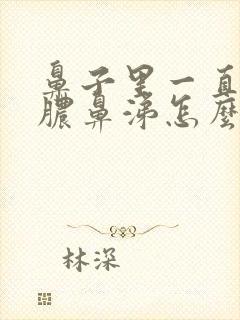 鼻子里一直
膿鼻涕怎麼
林深